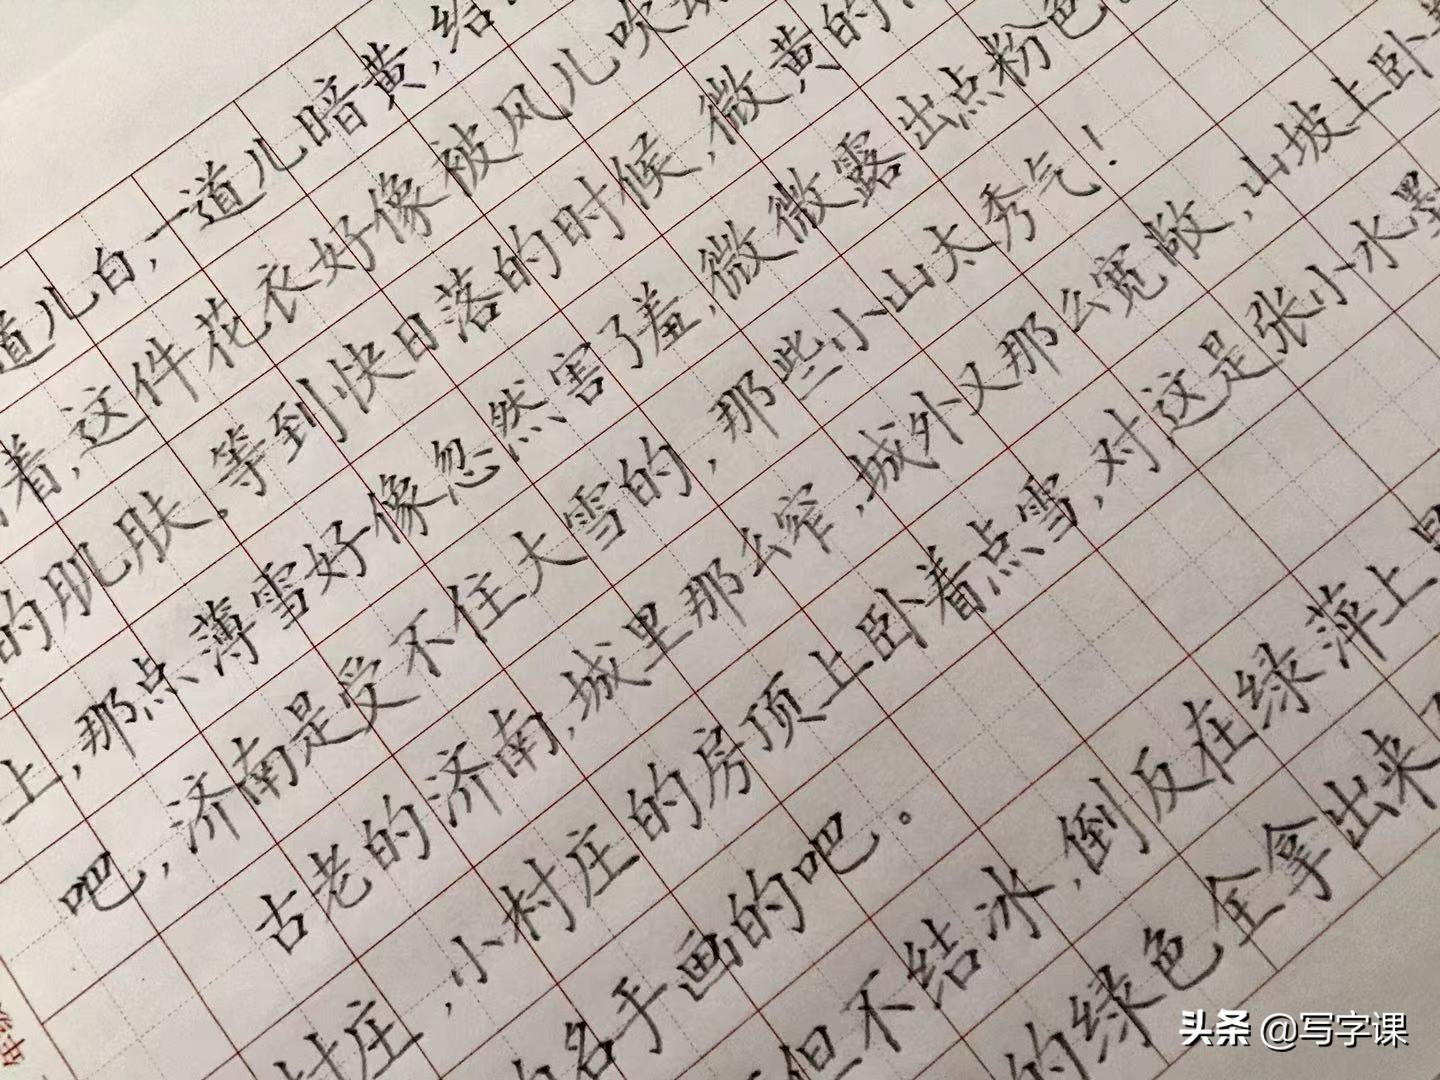 道儿白，一道儿暗黄，给
着，这件花衣好像被风儿吹
的肌肤。等到快日落的时候，微黄的
上，那点薄雪好像忽然害了羞，微微露出点粉色。
吧，济南是受不住大雪的，那些小山太秀气！
古老的济南，城里那么窄，城外又那么宽敞，山坡上卧
村庄，小村庄的房顶上卧着点雪，对，这是张小水墨
名手画的吧。
但不结冰，倒反在绿萍上
的绿色全拿出来
头条 @写字课